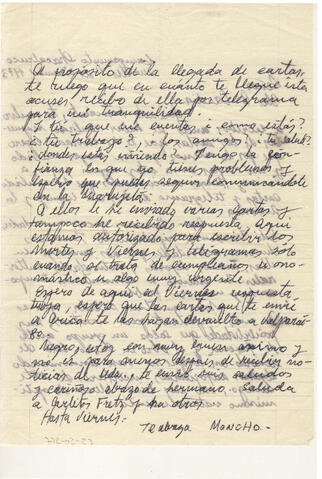 A propósito de la llegada de cartas,
te ruego que en cuánto te llegue ésta
acuses recibo de ella por telegrama
para mi tranquilidad.
Y tú, que me cuentas? como estás?
¿tu trabajo? ¿los amigos? ¿tu salud?
¿donde estás viviendo? Tengo la con-
fianza en que no tienes problemas y
espero que puedas seguir comunicándote
con la
A ellos le he enviado varias cartas y
tampoco he recibido respuesta. Aquí
estamos autorizado para escribir los
Martes y Viernes, y telegramas solo
cuando se trata de cumpleaños u ono-
mástico u algo muy urgente.
Espero de aquí al Viernes respuesta
tuya, espero que las cartas que te envié
a Arica te las hayan devuelto a Valparaí-
so.
Negro, estoy con muy buen ánimo y
no es para menos después de recibir no-
ticias de Uds., te envío mis saludos
y cariñoso abrazo de hermano. Saluda
a Carlitos, y a otros.
Hasta Viernes.
Te abraza MONCHO.-